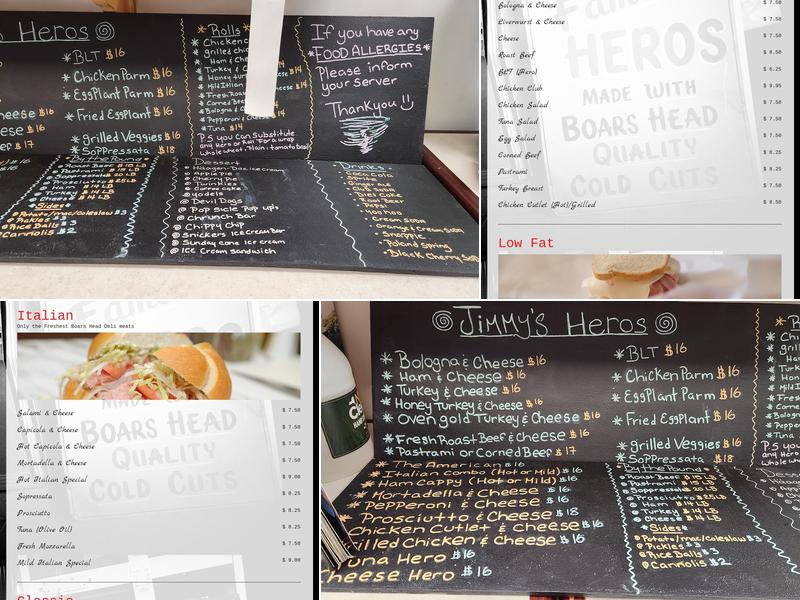 s Heros
*BLT $16
*Chicken Parm $16
*EggPlant Parm $16
*Fried EggPlant $16
*grilled Veggies $16
*SopPressata $18
*Rolls
If you have any
*FOOD ALLERGIES*
Please inform
your server
Thankyou
P.S you can Substitute
any Hero or Roll for a wrap
By the Pound
Sides
Potato/mac/coleslaw $3
Pickles $3
Rice Balls $3
Cannolis $2
Dessert
Häagen-Daz ice cream
Apple Pie
Cherry Pie
Twinkies
yodels
Devil Dogs
Popsicle Pop ups
Chrunch Bar
Chippy Chip
Snickers Ice Cream Bar
Sunday cone Ice cream
Ice Cream Sandwich
Drinks
Coca Cola
Sprite
Ginger ale
Club Soda
Diet Coke
Root Beer
Pepsi
Yoo hoo
Cream Soda
Orange & Cream Soda
Snapple
Poland Spring
Black Cherry So
Bologna & Cheese $ 7.50
Liverwurst & Cheese $ 7.50
Cheese $ 7.50
Roast Beef $ 8.50
BLT (Hero) $ 6.25
Chicken Club $ 9.95
Chicken Salad $ 7.50
Tuna Salad $ 7.50
Egg Salad $ 7.50
Corned Beef $ 8.25
Pastrami $ 8.25
Turkey Breast $ 7.50
Chicken Cutlet (Hot)/Grilled $ 8.50
HEROS
MADE WITH
BOARS HEAD
QUALITY
COLD CUTS
Low Fat
Italian
Only the Freshest Boars Head Deli Meats
Salami & Cheese $ 7.50
Capicola & Cheese $ 7.50
Hot Capicola & Cheese $ 7.50
Mortadella & Cheese $ 7.50
Hot Italian Special $ 9.00
Sopressata $ 8.25
Prosciutto $ 8.25
Tuna (Olive Oil) $ 8.25
Fresh Mozzarella $ 7.50
Mild Italian Special $ 9.00
BOARS HEAD
QUALITY
COLD CUTS
Classic
Jimmy's Heros
*Bologna & Cheese $16
*Ham & Cheese $16
*Turkey & Cheese $16
*Honey Turkey & Cheese $16
*Oven gold Turkey & Cheese $16
*Fresh Roast Beef & Cheese $16
*Pastrami or Corned Beef $17
*The American $16
*Italian Combo (Hot or Mild) $16
*Ham Cappy (Hot or Mild) $16
*Mortadella & Cheese $16
*PepPeroni & Cheese $16
*Prosciutto & Cheese $18
Chicken Cutlet & Cheese $16
illed Chicken & Cheese $16
una Hero $16
heese Hero $16
*BLT $16
*Chicken Parm $16
*EggPlant Parm $16
*Fried EggPlant $16
*grilled Veggies $16
*SopPressata $18
By the Pound
Roast Beef $15 LB
Pastrami $15 LB
Soppressata $20 LB
Prosciutto $25 LB
Ham $14 LB
Turkey $14 LB
Cheese $14 LB
*Sides*
Potato/mac/coleslaw $3
Pickles $3
Rice Balls $3
Cannolis $2